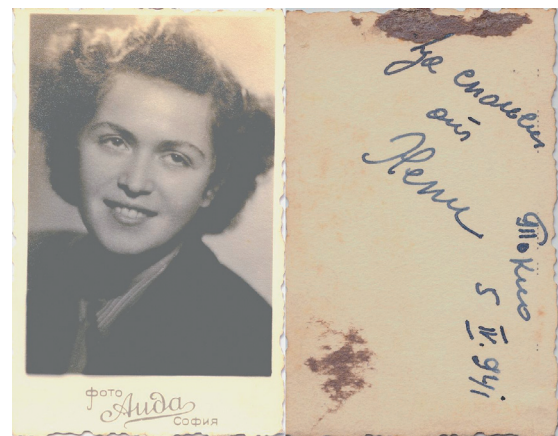 фото
Аида
СОФИЯ
За спомен
от
Токио
5 IV.941